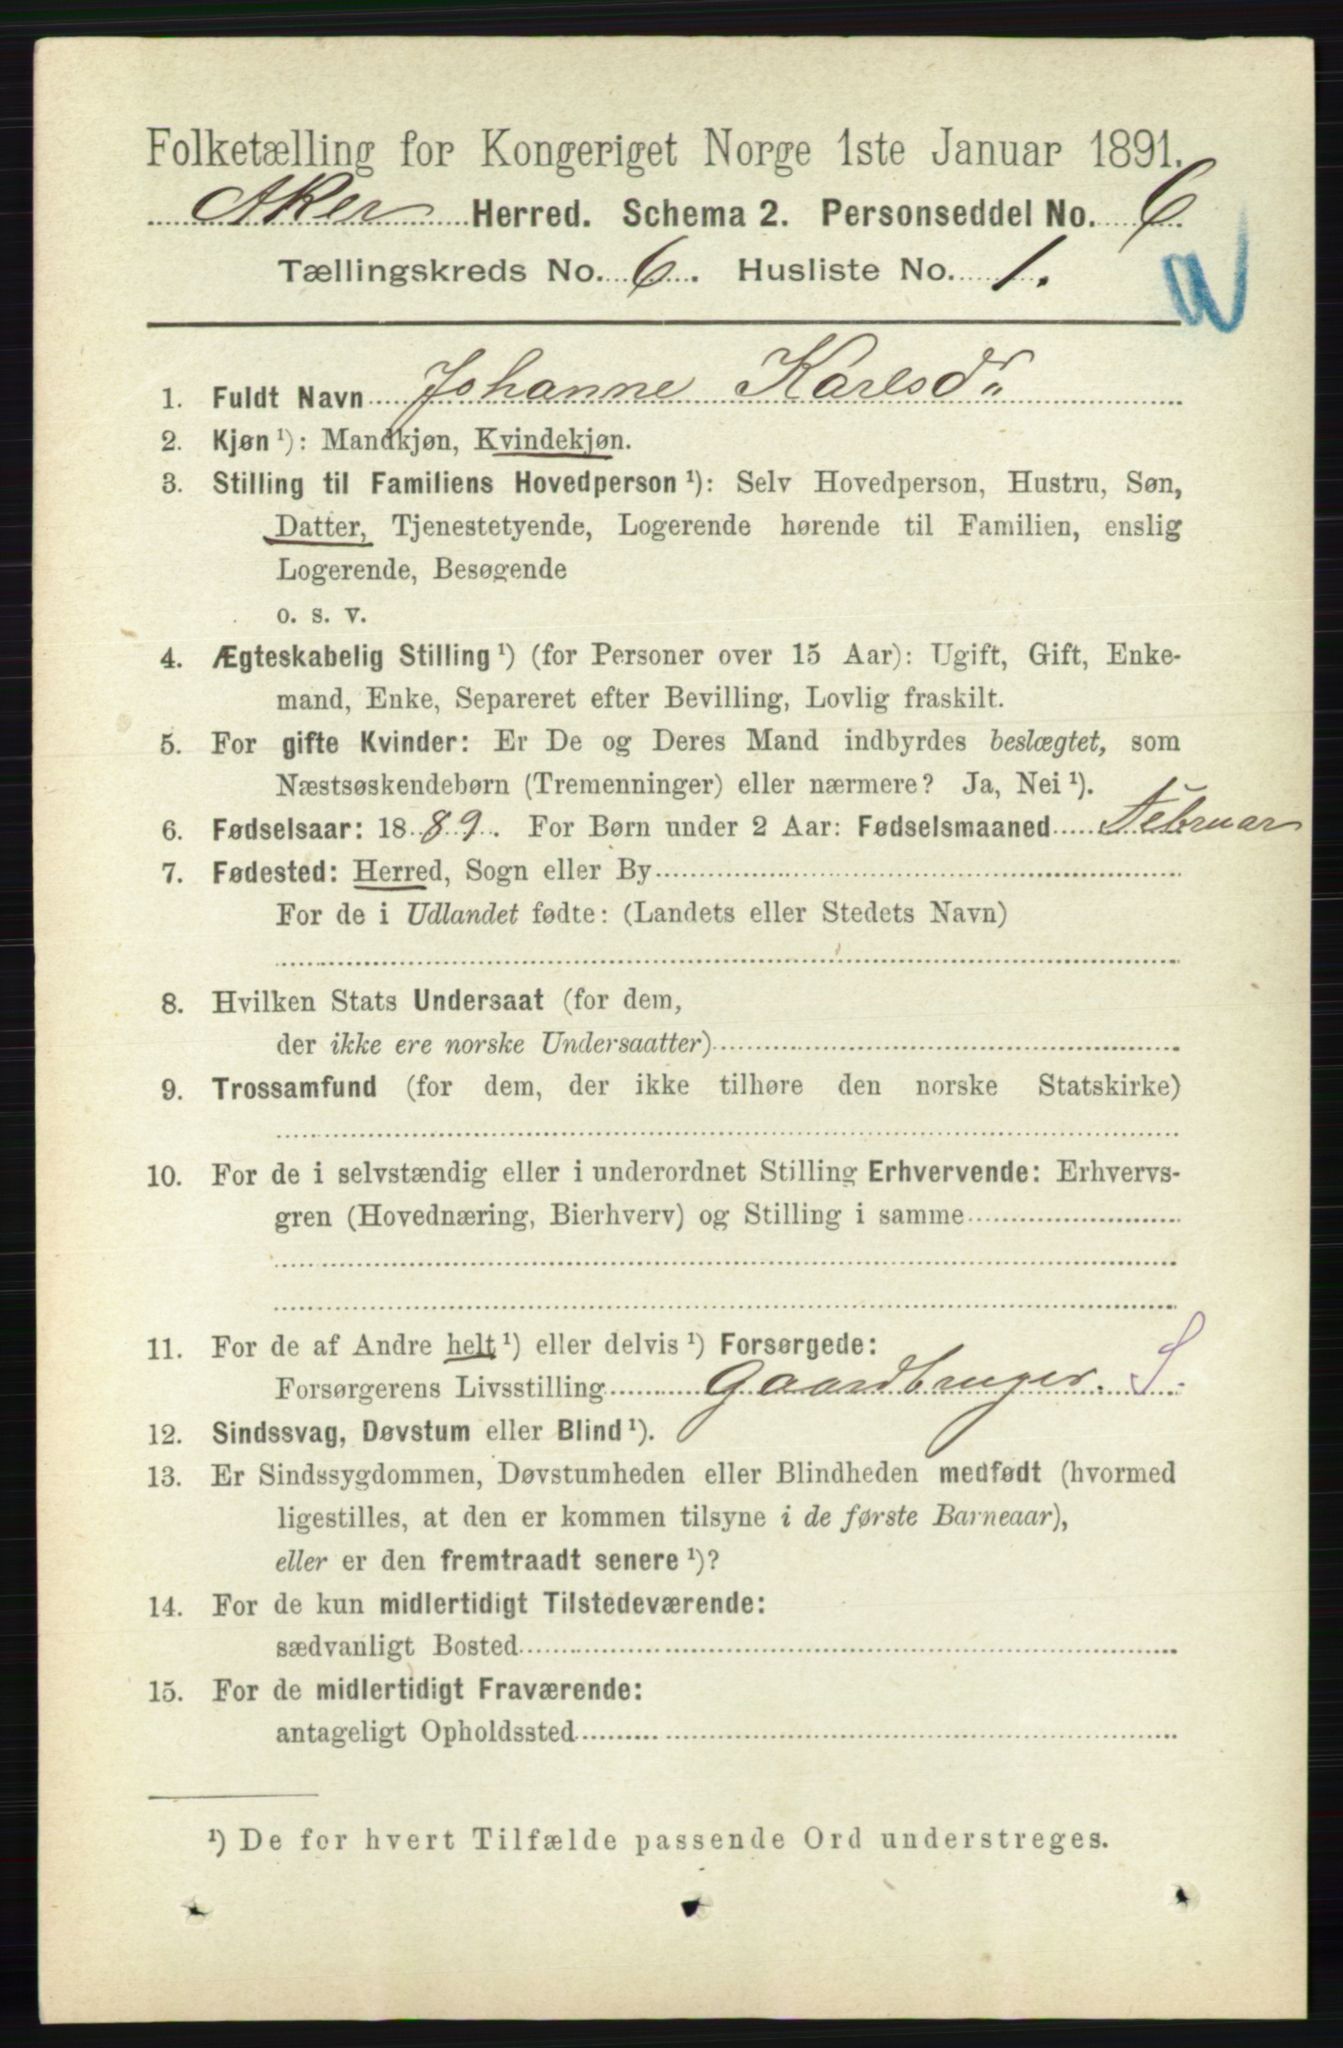 Folketælling for Kongeriget Norge 1ste Januar 1891.
Aker Herred. Schema 2. Personseddel No. 6.
Tællingskreds No. 6. Husliste No. 1.
1. Fuldt Navn Johanne Karlsd.
2. Kjøn ¹): Mandkjøn, Kvindekjøn.
3. Stilling til Familiens Hovedperson ¹): Selv Hovedperson, Hustru, Søn,
Datter, Tjenestetyende, Logerende hørende til Familien, enslig
Logerende, Besøgende
o. s. v.
4. Ægteskabelig Stilling ¹) (for Personer over 15 Aar): Ugift, Gift, Enke-
mand, Enke, Separeret efter Bevilling, Lovlig fraskilt.
5. For gifte Kvinder: Er De og Deres Mand indbyrdes beslægtet, som
Næstsøskendebørn (Tremenninger) eller nærmere? Ja, Nei ¹).
6. Fødselsaar: 1889. For Børn under 2 Aar: Fødselsmaaned Februar
7. Fødested: Herred, Sogn eller By
For de i Udlandet fødte: (Landets eller Stedets Navn)
8. Hvilken Stats Undersaat (for dem,
der ikke ere norske Undersaatter)
9. Trossamfund (for dem, der ikke tilhøre den norske Statskirke)
10. For de i selvstændig eller i underordnet Stilling Erhvervende: Erhvervs-
gren (Hovednæring, Bierhverv) og Stilling i samme
11. For de af Andre helt ¹) eller delvis ¹) Forsørgede:
Forsørgerens Livsstilling Gaardbruger. S.
12. Sindssvag, Døvstum eller Blind ¹).
13. Er Sindssygdommen, Døvstumheden eller Blindheden medfødt (hvormed
ligestilles, at den er kommen tilsyne i de første Barneaar),
eller er den fremtraadt senere ¹)?
14. For de kun midlertidigt Tilstedeværende:
sædvanligt Bosted
15. For de midlertidigt Fraværende:
antageligt Opholdssted
¹) De for hvert Tilfælde passende Ord understreges.